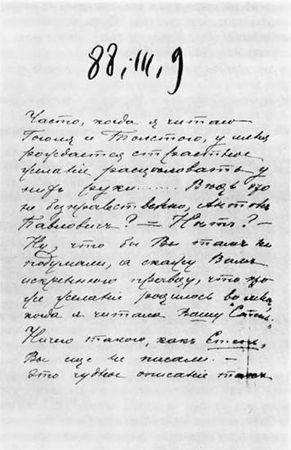 88, III, 9
Часто, когда я читаю
Гоголя и Толстого, у меня
рождается страстное
желаніе расцѣловать у
нихъ руки...... Вѣдь это
не безнравственно, Антонъ
Павловичъ? — Нѣтъ? —
Ну, что бы Вы тамъ не
подумали, а скажу Вамъ
искреннюю правду, что то
же желаніе родилось во мнѣ,
когда я читала Вашу "Степь".
Ничего такого, какъ Степь,
Вы еще не писали. —
Это чудное описаніе такъ